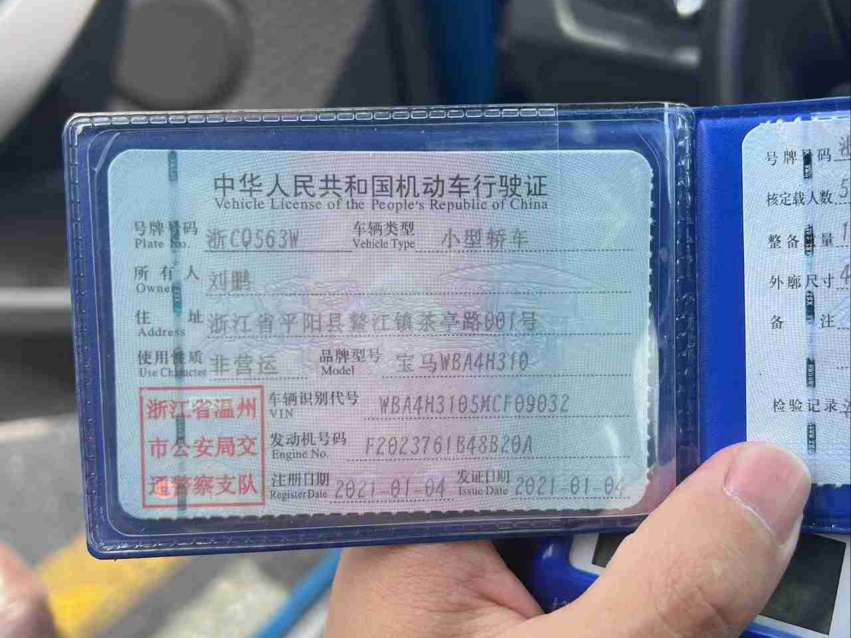 中华人民共和国机动车行驶证
Vehicle License of the People's Republic of China
号牌号码 浙CQ563W 车辆类型 小型轿车
Plate No. Vehicle Type
所有人 刘鹏
Owner
住址 浙江省平阳县鳌江镇茶亭路001号
Address
使用性质 非营运 品牌型号 宝马WBA4H310
Use Character Model
浙江省温州
市公安局交
通警察支队
车辆识别代号 WBA4H3105MCF09032
VIN
发动机号码 F2023761B48B20A
Engine No.
注册日期 2021-01-04 发证日期 2021-01-04
Register Date Issue Date
号牌号码 浙
核定载人数 5
整备质量 1
外廓尺寸 4
备注
检验记录